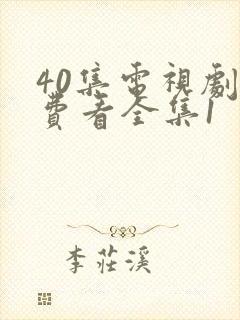 40集電視劇
費看全集1
李莊溪